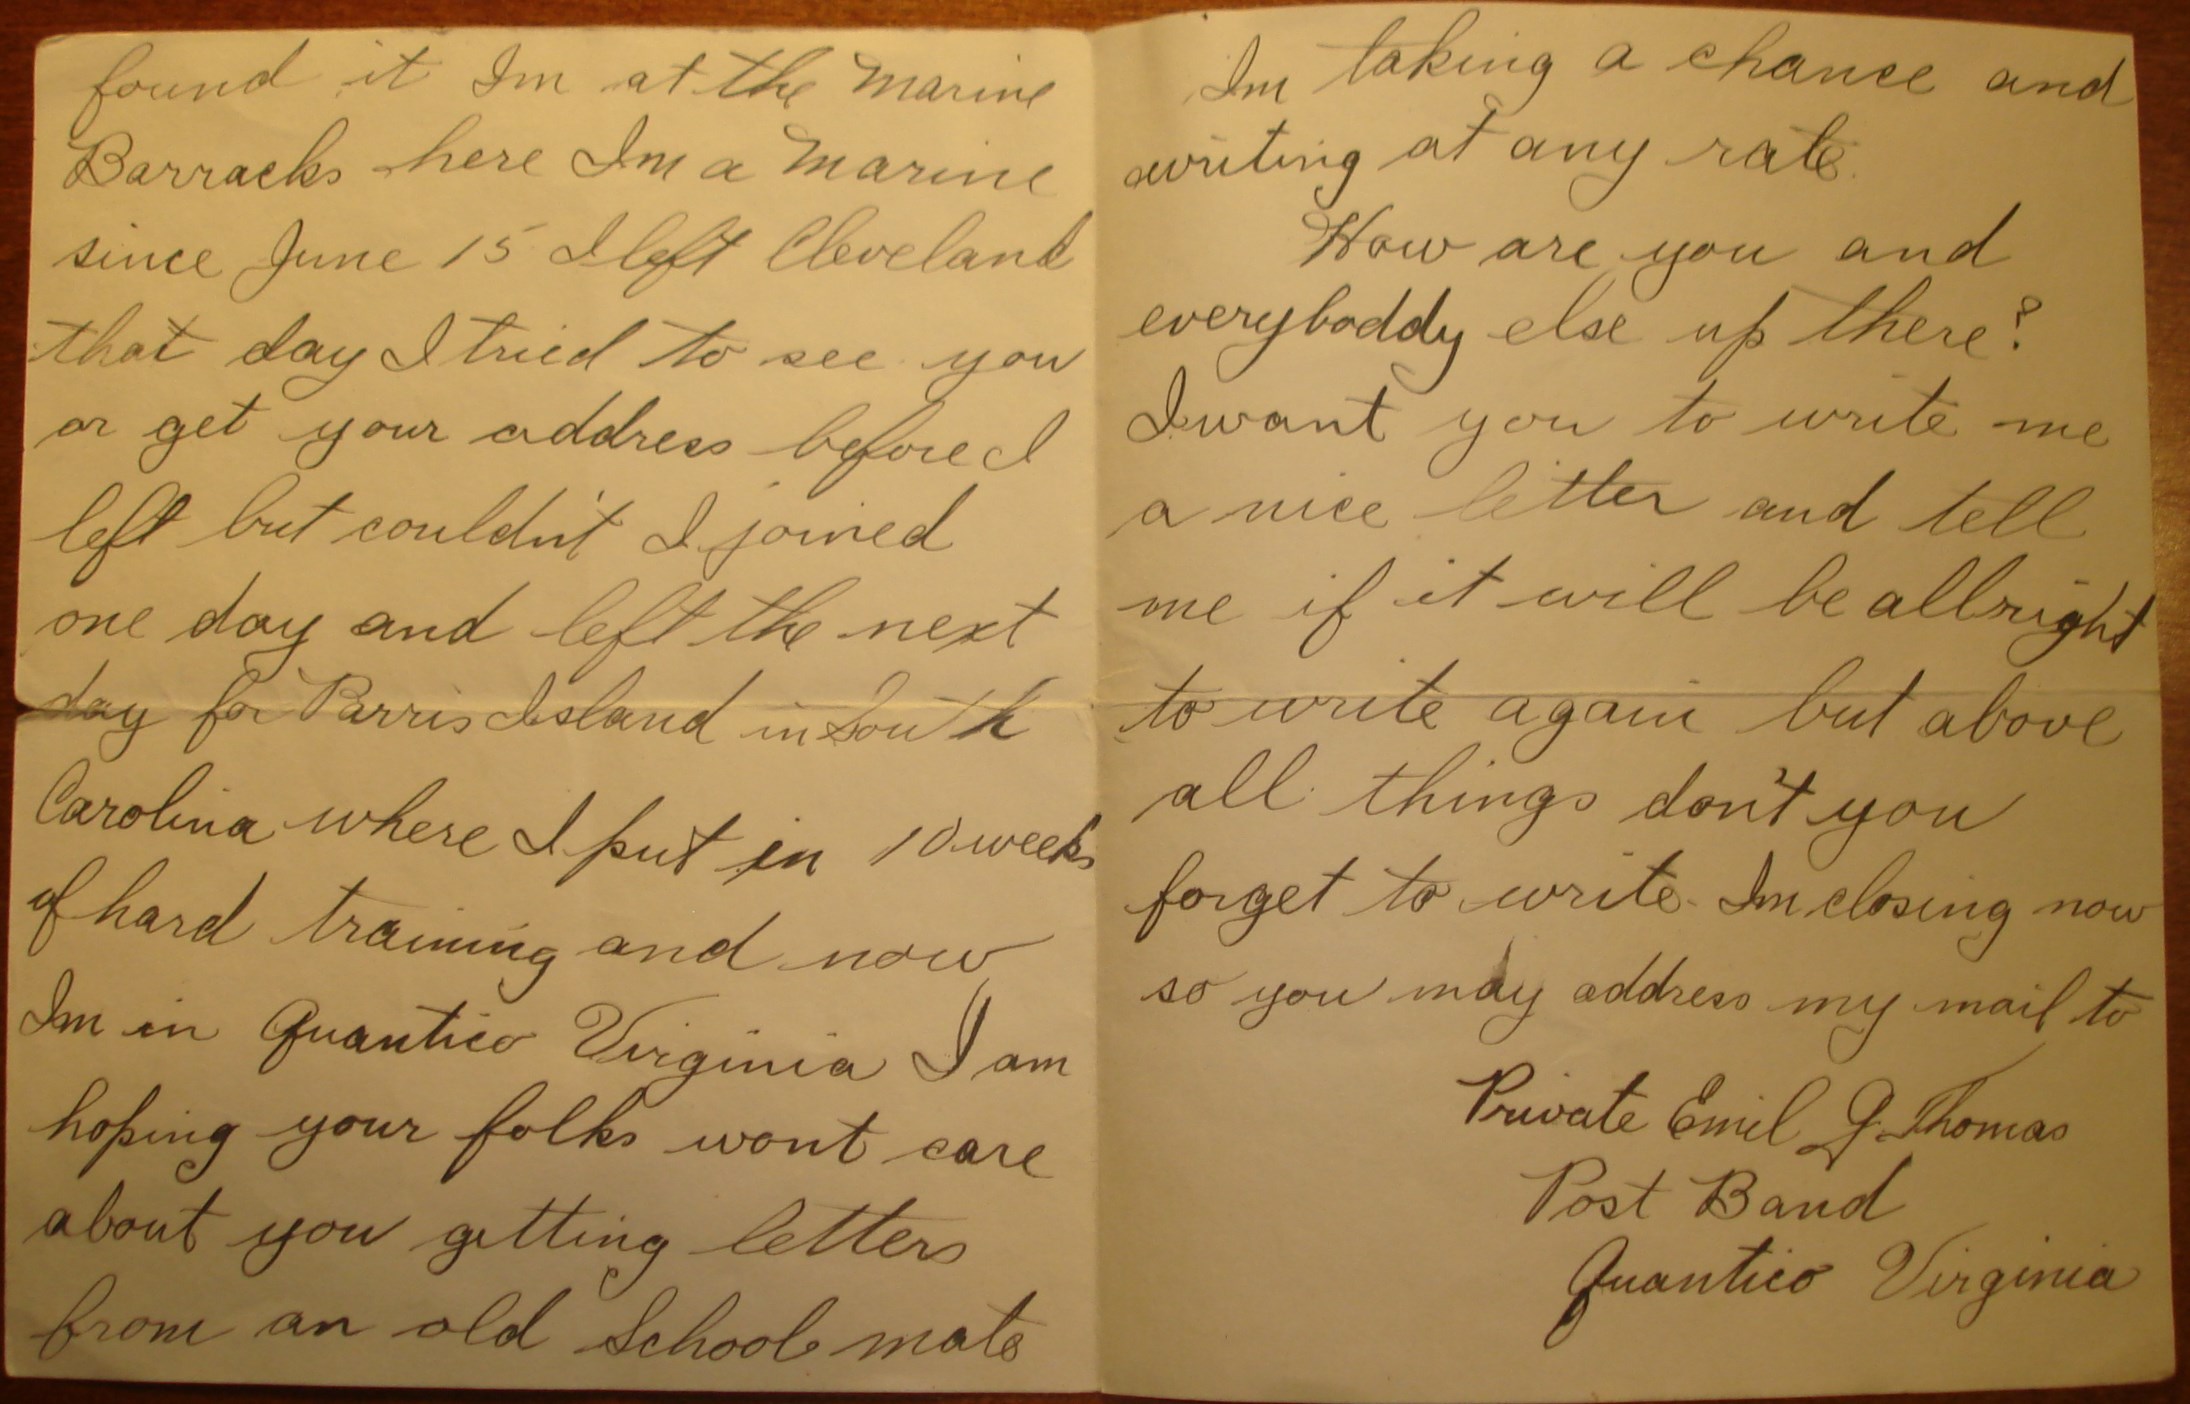 found it Im at the Marine
Barracks here Im a Marine
since June 15 I left Cleveland
that day I tried to see you
or get your address before I
left but couldn't I joined
one day and left the next
day for Parris Island in South
Carolina where I put in 10 weeks
of hard training and now
Im in Quantico Virginia I am
hoping your folks wont care
about you getting letters
from an old School mate
Im taking a chance and
writing at any rate.
How are you and
everyboddy else up there?
I want you to write me
a nice letter and tell
me if it will be allright
to write again but above
all things don't you
forget to write. Im closing now
so you may address my mail to
Private Emil G. Thomas
Post Band
Quantico Virginia